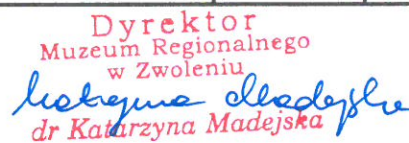 Dyrektor
Muzeum Regionalnego
w Zwoleniu
Katarzyna Madejska
dr Katarzyna Madejska